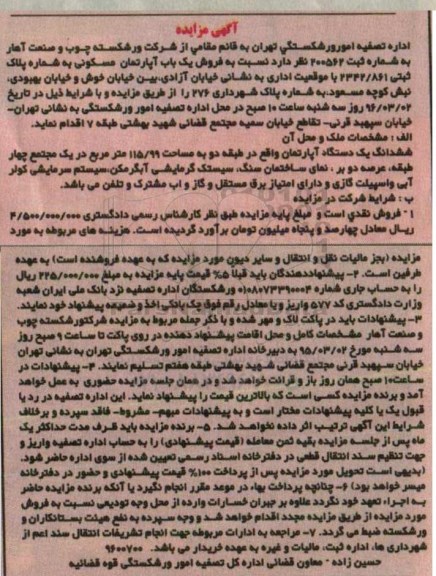 آگهی مزایده
اداره تصفیه امورورشکستگي تهران به قائم مقامي از شرکت ورشکسته چوب و صنعت آهار
به شماره ثبت ۲۰۰۵۶۲ نظر دارد نسبت به فروش یک باب آپارتمان مسکونی به شماره پلاک
ثبتی ۲۳۴۲/۸۶۱ با موقعیت اداری به نشانی خیابان آزادی،بین خیابان خوش و خیابان بهبودی،
نبش کوچه مسعود،به شماره پلاک شهرداری ۲۷۶ را از طریق مزایده و با شرایط ذیل در تاریخ
۹۶/۰۳/۰۲ روز سه شنبه ساعت ۱۰ صبح در محل اداره تصفیه امور ورشکستگی به نشانی تهران-
خیابان سپهبد قرنی- تقاطع خیابان سمیه مجتمع قضائی شهید بهشتی طبقه ۷ اقدام نماید.
الف : مشخصات ملک و محل آن
ششدانگ یک دستگاه آپارتمان واقع در طبقه دو به مساحت ۱۱۵/۹۹ متر مربع در یک مجتمع چهار
طبقه، عرصه دو بر ، نمای ساختمان سنگ، سیستک گرمایشی آبگرمکن،سیستم سرمایشی کولر
آبی واسپیلت گازی و دارای امتیاز برق مستقل و گاز و اب مشترک و تلفن می باشد.
ب : شرایط شرکت در مزایده
۱- فروش نقدي است و مبلغ پایه مزایده طبق نظر کارشناس رسمی دادگستری ۴/۵۰۰/۰۰۰/۰۰۰
ریال معادل چهارصد و پنجاه میلیون تومان برآورد گردیده است. هزینه های مربوطه به مورد
مزایده (بجز مالیات نقل و انتقال و سایر دیون مورد مزایده که به عهده فروشنده است) به عهده
طرفین است. ۲- پیشنهاددهندگان باید قبلاً ۵٪ قیمت پایه مزایده به مبلغ ۲۲۵/۰۰۰/۰۰۰ ریال
را به حساب جاری شماره ۰۱۰۸۰۷۳۳۹۰۰۰۴ ورشکستگان اداره تصفیه نزد بانک ملی ایران شعبه
وزارت دادگستری کد ۵۷۷ واریز و یا معادل رقم فوق چک بانکی اخذ و ضمیمه پیشنهاد خود نمایند.
۳- پیشنهادات باید در پاکت لاک و مهر شده و با ذکر جمله مربوط به مزایده شرکتورشکسته چوب
و صنعت آهار مشخصات کامل و محل اقامت پیشنهاد دهنده در روی پاکت تا ساعت ۹ صبح روز
سه شنبه مورخ ۹۵/۰۳/۰۲ به دبیرخانه اداره تصفیه امور ورشکستگی تهران به نشانی تهران
خیابان سپهبد قرنی مجتمع قضائی شهید بهشتی طبقه هفتم تسلیم نمایند. ۴- پیشنهادات در
ساعت۱۰ صبح همان روز باز و قرائت خواهد شد و در همان جلسه مزایده حضوری به عمل خواهد
آمد و برنده مزایده کسی است که بالاترین قیمت را پیشنهاد نماید. این اداره تصفیه در رد یا
قبول یک یا کلیه پیشنهادات مختار است و به پیشنهادات مبهم- مشروط- فاقد سپرده و برخلاف
شرایط این آگهی ترتیب اثر داده نخواهد شد. ۵- برنده مزایده باید ظرف مدت حداکثر یک
ماه پس از جلسه مزایده بقیه ثمن معامله (قیمت پیشنهادی) را به حساب اداره تصفیه واریز و
جهت تنظیم سند انتقال قطعی در دفترخانه اسناد رسمی تعیین شده از سوی اداره حاضر شود.
(بدیهی است تحویل مورد مزایده پس از پرداخت ۱۰۰٪ قیمت پیشنهادی و حضور در دفترخانه
میسر خواهد بود) ۶- چنانچه پرداخت بهاء در موعد مقرر انجام نگیرد یا آنکه برنده مزایده حاضر
به اجراء تعهد خود نگردد علاوه بر جبران خسارات وارده از محل وجه تودیعی نسبت به فروش
مورد مزایده از طریق مزایده مجدد اقدام خواهد شد و وجه سپرده به نفع هیئت بستانکاران و
ورشکسته ضبط می گردد. ۷- مراجعه به ادارات مربوطه جهت انجام تشریفات انتقال سند اعم از
شهرداری ها، اداره ثبت، مالیات و غیره به عهده خریدار می باشد. ۹۶۰۰۷۰۰
حسین زاده - معاون قضائی اداره کل تصفیه امور ورشکستگی قوه قضائیه